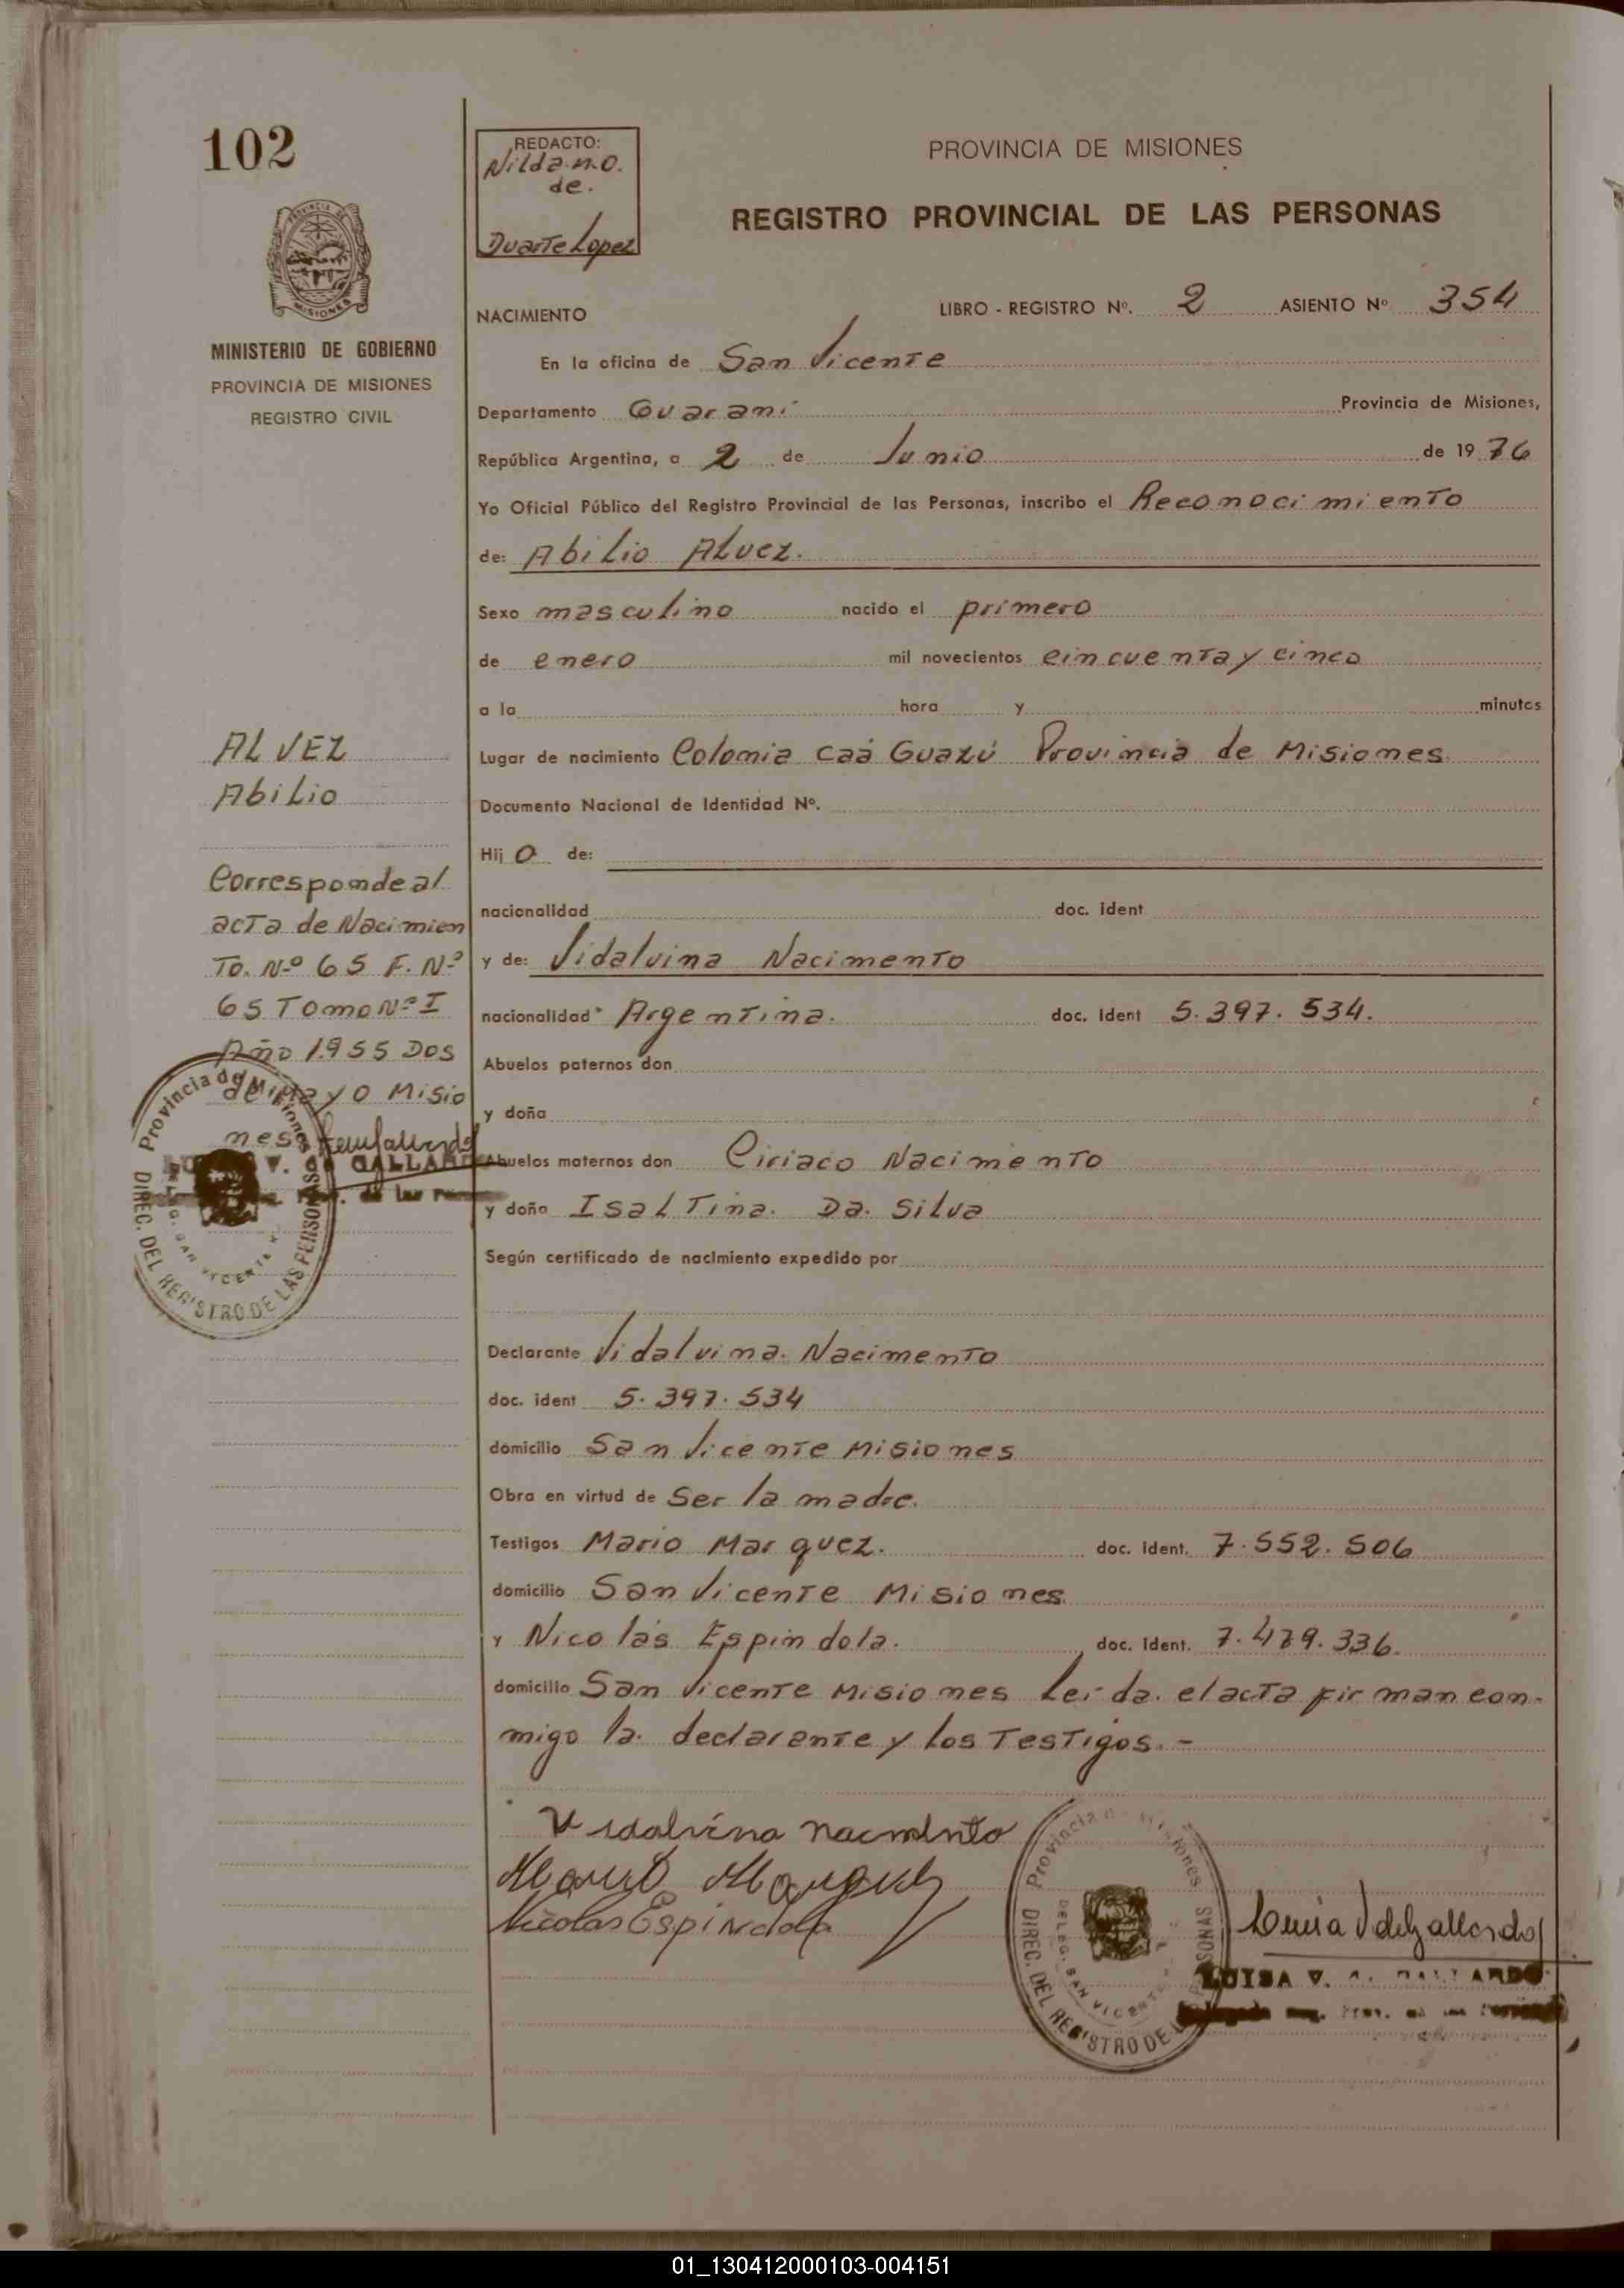 102
REDACTO:
Nilda n.o.
de.
Duarte Lopez
PROVINCIA DE MISIONES
REGISTRO PROVINCIAL DE LAS PERSONAS
PROVINCIA DE
MISIONES
MINISTERIO DE GOBIERNO
PROVINCIA DE MISIONES
REGISTRO CIVIL
NACIMIENTO
LIBRO - REGISTRO Nº. 2 ASIENTO Nº 354
En la oficina de San Vicente
Departamento Guaraní Provincia de Misiones,
República Argentina, a 2 de Junio de 19 76
Yo Oficial Público del Registro Provincial de las Personas, inscribo el Reconocimiento
de: Abilio Alvez.
Sexo masculino nacido el primero
de enero mil novecientos cincuenta y cinco
a la hora y minutos
Lugar de nacimiento Colonia Caá Guazú Provincia de Misiones.
Documento Nacional de Identidad Nº.
Hij o de:
nacionalidad doc. ident
y de: Vidalvina Nacimento
nacionalidad Argentina. doc. ident 5.397.534.
Abuelos paternos don
y doña
Abuelos maternos don Ciriaco Nacimento
y doña Isaltina. Da. Silva
Según certificado de nacimiento expedido por
Declarante Vidalvina. Nacimento
doc. ident 5.397.534
domicilio San Vicente Misiones
Obra en virtud de Ser la madre.
Testigos Mario Marquez. doc. ident. 7.552.506
domicilio San Vicente Misiones.
y Nicolás Espindola. doc. ident. 7.479.336.
domicilio San Vicente Misiones Leída. el acta firman con-
migo la. declarante y los Testigos.-
ALVEZ
Abilio
Corresponde al
acta de Nacimien
To. Nº 65 F. Nº
65 Tomo Nº I
Año 1955 Dos
de Mayo Misio
nes
Provincia de Misiones
DIREC. DEL REGISTRO DE LAS PERSONAS
DELEG. SAN VICENTE
V. de GALLARDO
Prov. de las
Vidalvina nacimento
Mario Marquez
Nicolas Espindola
Provincia de Misiones
DIREC. DEL REGISTRO DE LAS PERSONAS
DELEG. SAN VICENTE
Luisa V de Gallardo
LUISA V. GALLARDO
01_130412000103-004151